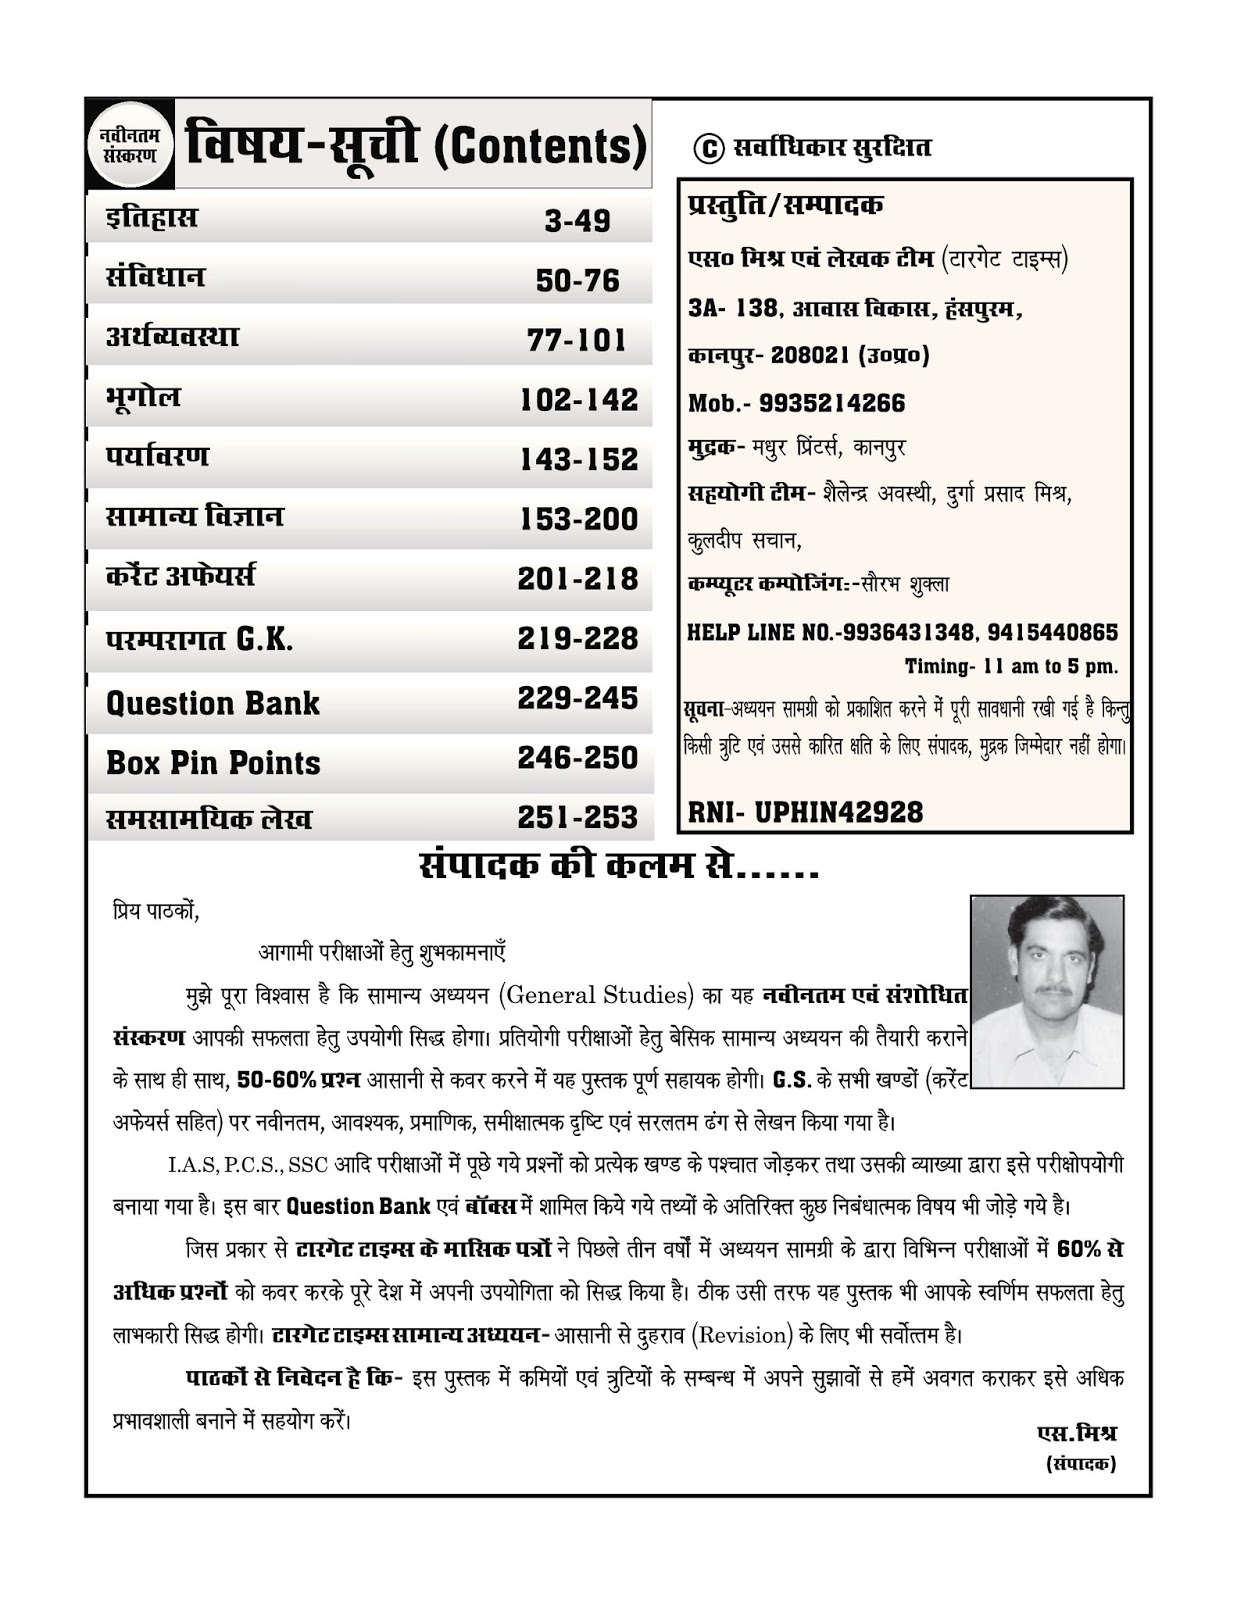 नवीनतम
संस्करण
विषय-सूची (Contents)
इतिहास 3-49
संविधान 50-76
अर्थव्यवस्था 77-101
भूगोल 102-142
पर्यावरण 143-152
सामान्य विज्ञान 153-200
करेंट अफेयर्स 201-218
परम्परागत G.K. 219-228
Question Bank 229-245
Box Pin Points 246-250
समसामयिक लेख 251-253
© सर्वाधिकार सुरक्षित
प्रस्तुति/सम्पादक
एस० मिश्र एवं लेखक टीम (टारगेट टाइम्स)
3A- 138, आवास विकास, हंसपुरम,
कानपुर- 208021 (उ०प्र०)
Mob.- 9935214266
मुद्रक- मधुर प्रिंटर्स, कानपुर
सहयोगी टीम- शैलेन्द्र अवस्थी, दुर्गा प्रसाद मिश्र,
कुलदीप सचान,
कम्प्यूटर कम्पोजिंग:-सौरभ शुक्ला
HELP LINE NO.-9936431348, 9415440865
Timing- 11 am to 5 pm.
सूचना-अध्ययन सामग्री को प्रकाशित करने में पूरी सावधानी रखी गई है किन्तु
किसी त्रुटि एवं उससे कारित क्षति के लिए संपादक, मुद्रक जिम्मेदार नहीं होगा।
RNI- UPHIN42928
संपादक की कलम से......
प्रिय पाठकों,
आगामी परीक्षाओं हेतु शुभकामनाएँ
मुझे पूरा विश्वास है कि सामान्य अध्ययन (General Studies) का यह नवीनतम एवं संशोधित
संस्करण आपकी सफलता हेतु उपयोगी सिद्ध होगा। प्रतियोगी परीक्षाओं हेतु बेसिक सामान्य अध्ययन की तैयारी कराने
के साथ ही साथ, 50-60% प्रश्न आसानी से कवर करने में यह पुस्तक पूर्ण सहायक होगी। G.S. के सभी खण्डों (करेंट
अफेयर्स सहित) पर नवीनतम, आवश्यक, प्रमाणिक, समीक्षात्मक दृष्टि एवं सरलतम ढंग से लेखन किया गया है।
I.A.S, P.C.S., SSC आदि परीक्षाओं में पूछे गये प्रश्नों को प्रत्येक खण्ड के पश्चात जोड़कर तथा उसकी व्याख्या द्वारा इसे परीक्षोपयोगी
बनाया गया है। इस बार Question Bank एवं बॉक्स में शामिल किये गये तथ्यों के अतिरिक्त कुछ निबंधात्मक विषय भी जोड़े गये है।
जिस प्रकार से टारगेट टाइम्स के मासिक पत्रों ने पिछले तीन वर्षों में अध्ययन सामग्री के द्वारा विभिन्न परीक्षाओं में 60% से
अधिक प्रश्नों को कवर करके पूरे देश में अपनी उपयोगिता को सिद्ध किया है। ठीक उसी तरफ यह पुस्तक भी आपके स्वर्णिम सफलता हेतु
लाभकारी सिद्ध होगी। टारगेट टाइम्स सामान्य अध्ययन- आसानी से दुहराव (Revision) के लिए भी सर्वोत्तम है।
पाठकों से निवेदन है कि- इस पुस्तक में कमियों एवं त्रुटियों के सम्बन्ध में अपने सुझावों से हमें अवगत कराकर इसे अधिक
प्रभावशाली बनाने में सहयोग करें।
एस.मिश्र
(संपादक)